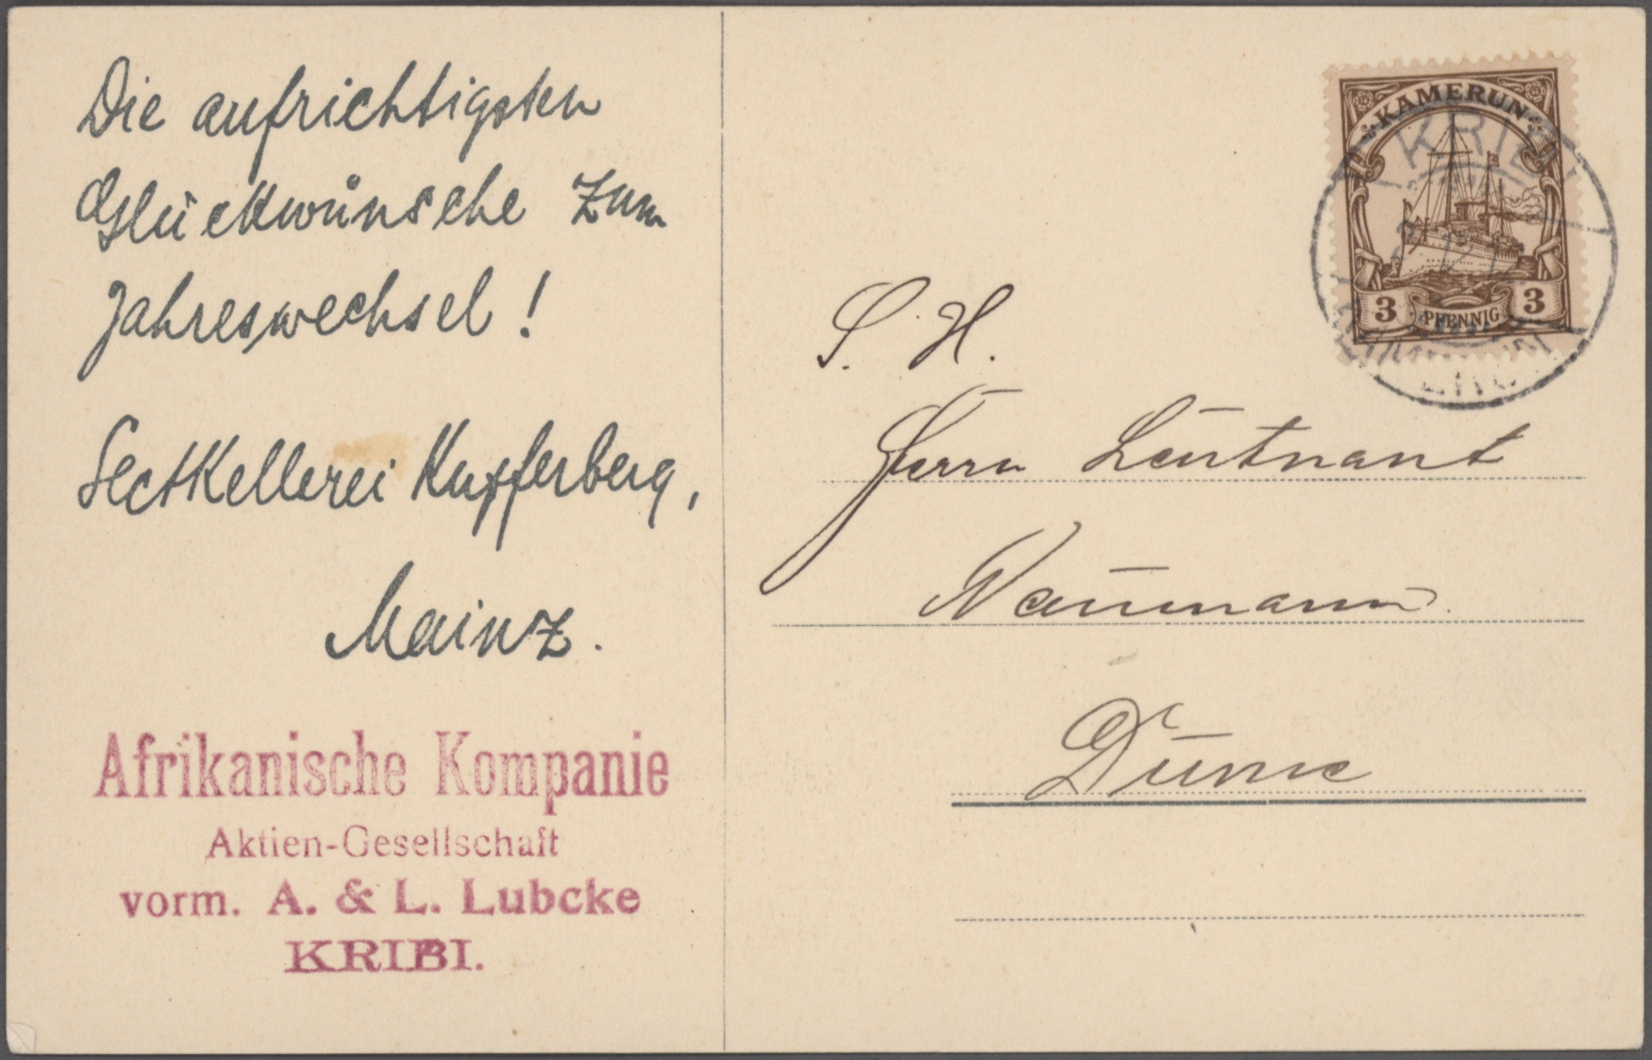 Die aufrichtigsten
Glückwünsche zum
Jahreswechsel!
Sectkellerei Kupferberg,
Mainz.
Afrikanische Kompanie
Aktien-Gesellschaft
vorm. A. & L. Lubcke
KRIBI.
KAMERUN
3 PFENNIG 3
KRIBI
S. H.
Herrn Leutnant
Naumann
Dume